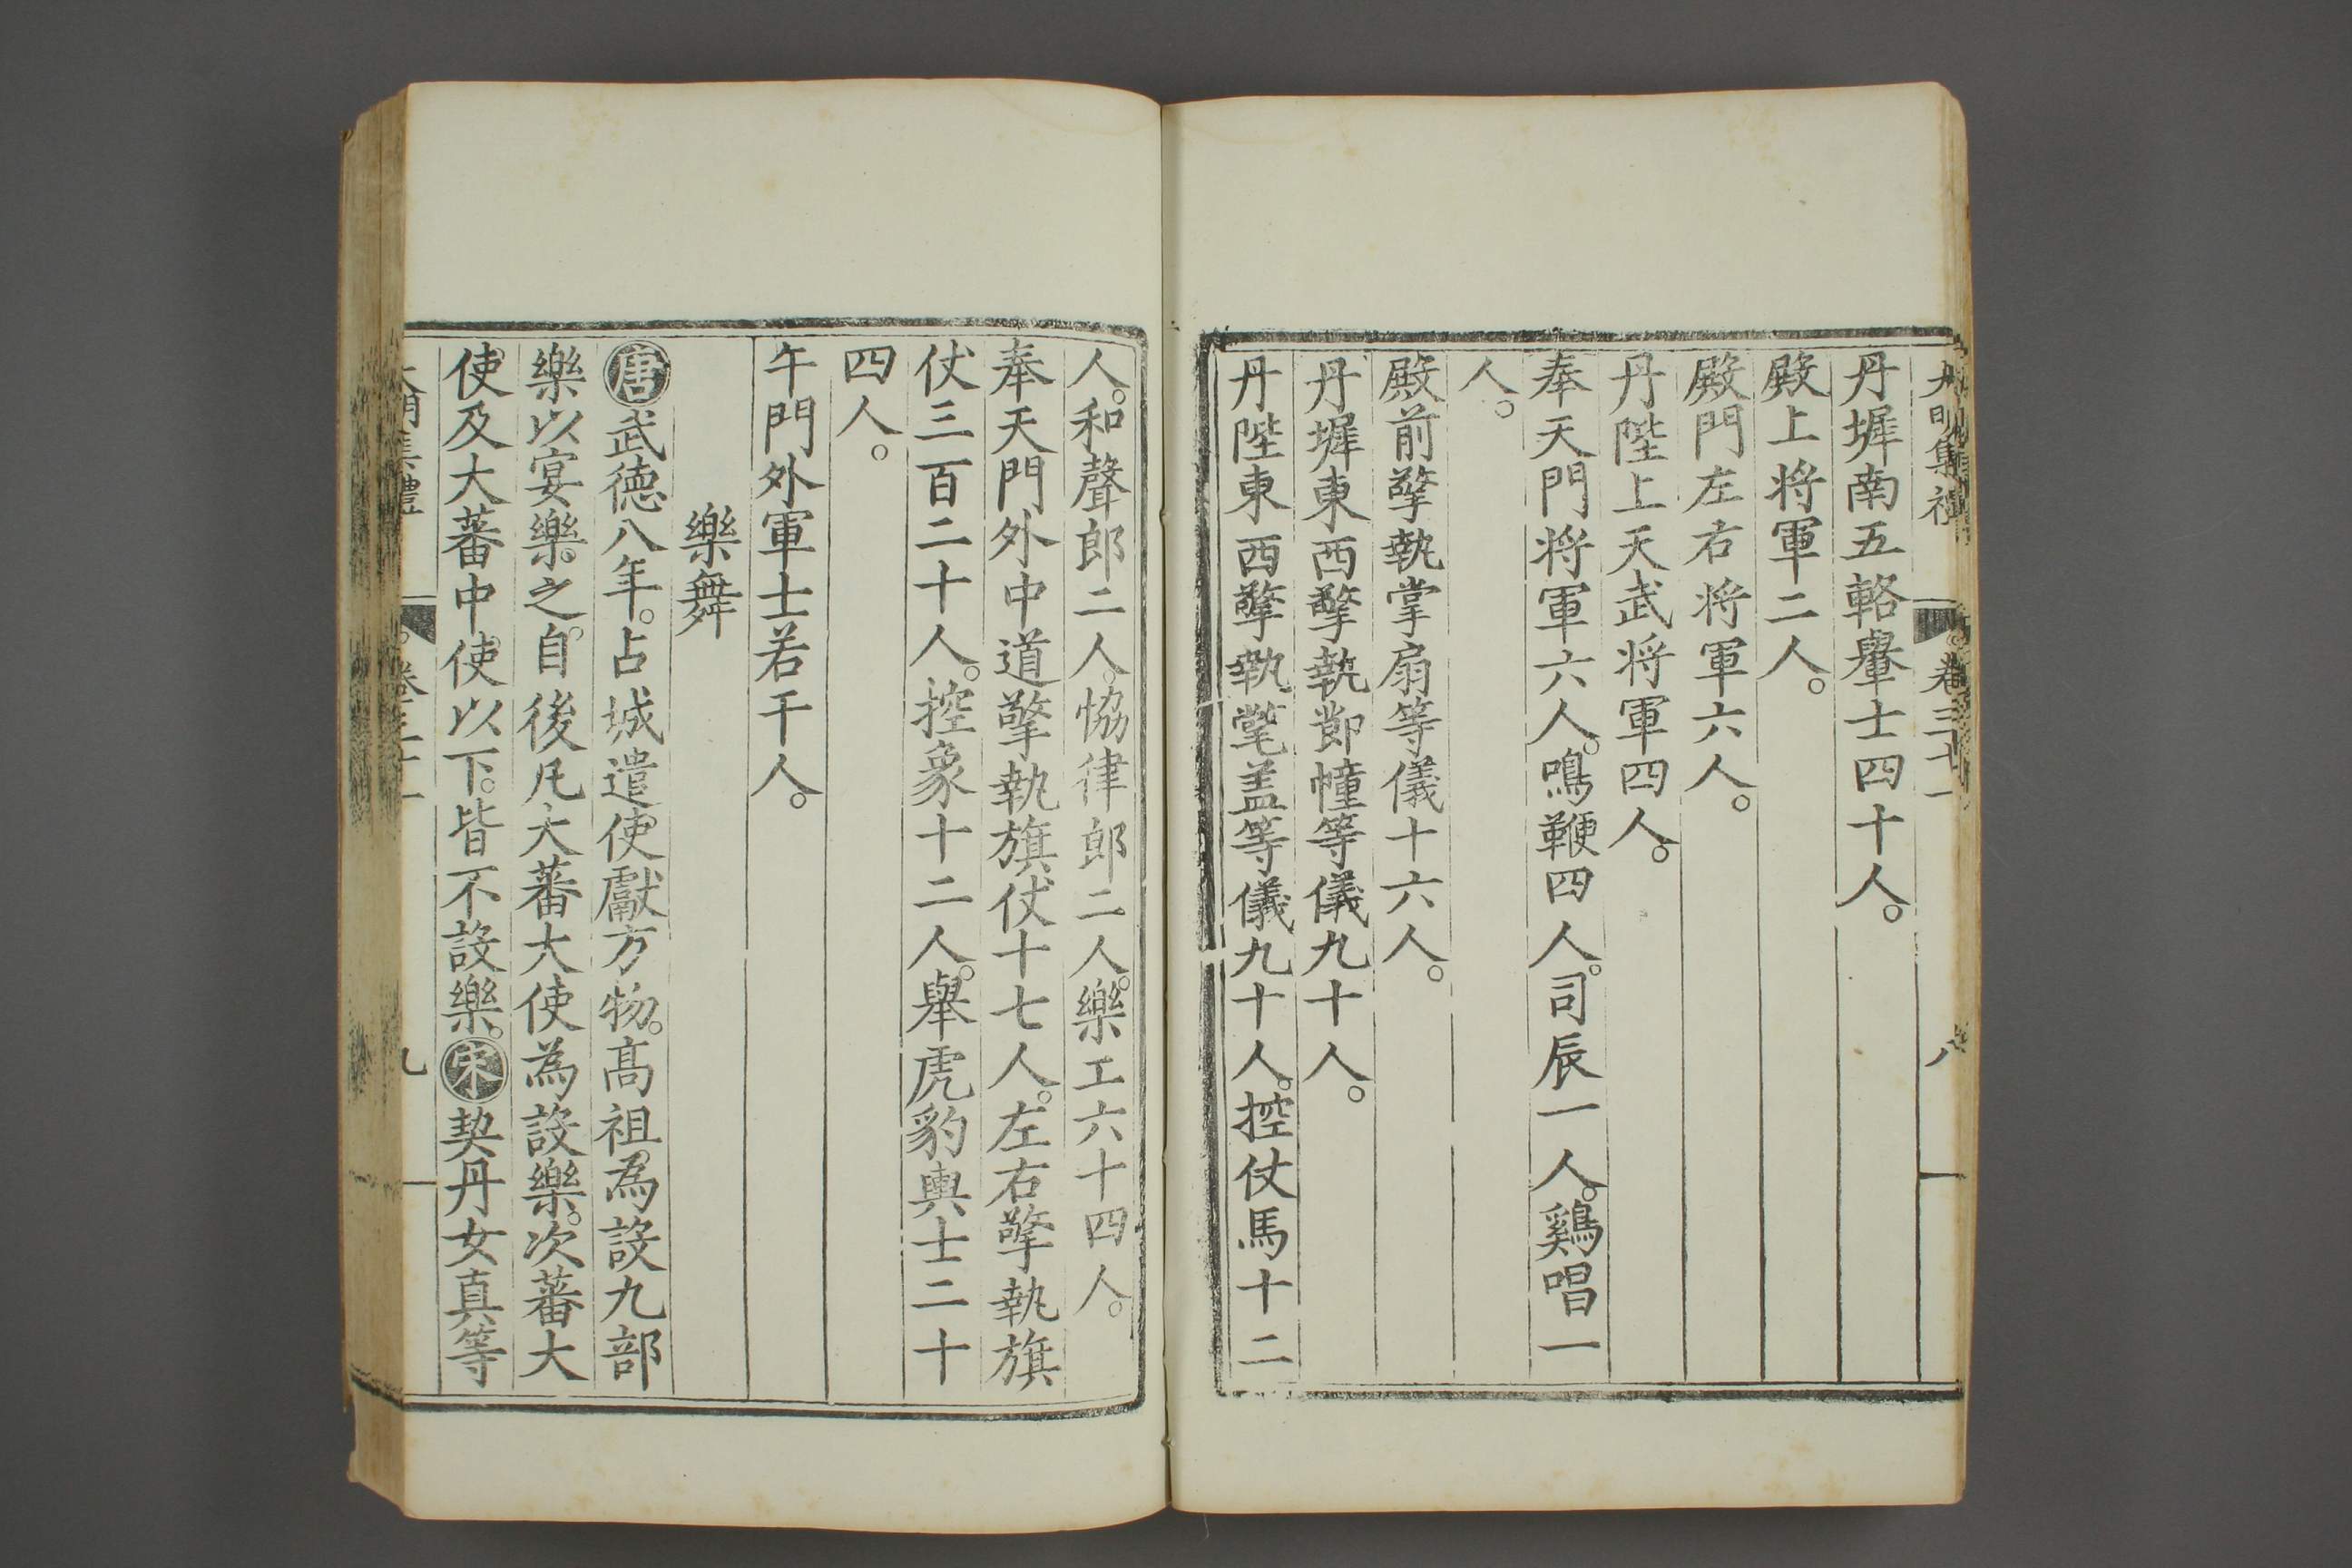 大明集禮 卷三十一 八
丹墀南五輅轝士四十人。
殿上將軍二人。
殿門左右將軍六人。
丹陛上天武將軍四人。
奉天門將軍六人。鳴鞭四人。司辰一人。鷄唱一
人。
殿前擎執掌扇等儀十六人。
丹墀東西擎執節幢等儀九十人。
丹陛東西擎執氅盖等儀九十人。控仗馬十二
人。和聲郎二人。恊律郎二人。樂工六十四人。
奉天門外中道擎執旗仗十七人。左右擎執旗
仗三百二十人。控象十二人。舉虎豹輿士二十
四人。
午門外軍士若干人。
樂舞
唐武德八年。占城遣使獻方物。高祖為設九部
樂以宴樂之。自後凡大蕃大使為設樂。次蕃大
使及大蕃中使以下。皆不設樂。宋契丹女真等
大明集禮 卷三十一 九